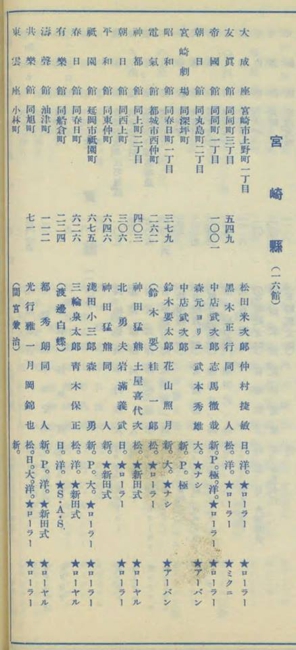 宮崎縣（一六館）
大成座 宮崎市上野町一丁目 松田米次郎 仲村捷敏 日。洋。 ★ローラー
友貫館 同同町三丁目 五四九 黒木正行 同人 松。洋。 ★ローラー ★ミクニ
帝國館 同同町一丁目 一〇〇一 中店武次郎 志馬微並 新。P。極。洋。 ★ローラー
朝日館 同丸島町二丁目 森元ヨリエ 武本秀雄 大。★ナシ ★アーバン
宮崎劇場 同深坪町 中店武次郎 新。P。極
昭和館 同春日町一丁目 三七九 鈴木要太郎 花山照月 新。大。★ナシ ★アーバン
電氣館 都城市西仲町 二六二 （鈴木要） 桂一郎 松。★ローラー
神都館 同上町二丁目 四〇三 神田猛熊 土屋喜代次 松。★新田式 ★ローラー
朝日館 同西上町 三〇六 北勇夫 岩滿義武 日。★ローラー
平和館 同東仲町 六四六 神田猛熊 同人 新。★新田式
祇園館 延岡市祇園町 六七五 淺田小三郎 森勇 新。P。大。★ローラー ★ローラー
春日館 同春日町 六二六 三輪泉太郎 青木保正 松。洋。★新田式 ★ローヤル
有樂館 同船倉町 二二四 （渡邊白蝶） 日。洋。★S・A・S
濤聲館 油津町 一一二 都秀朗 同人 新。P。洋。★新田式 ★ローヤル
共樂館 同旭町 七一 光行雅一 月岡錦也 松。日。大。洋。★ローラー ★ローラー
東雲座 小林町 （間宮兼治） 新。